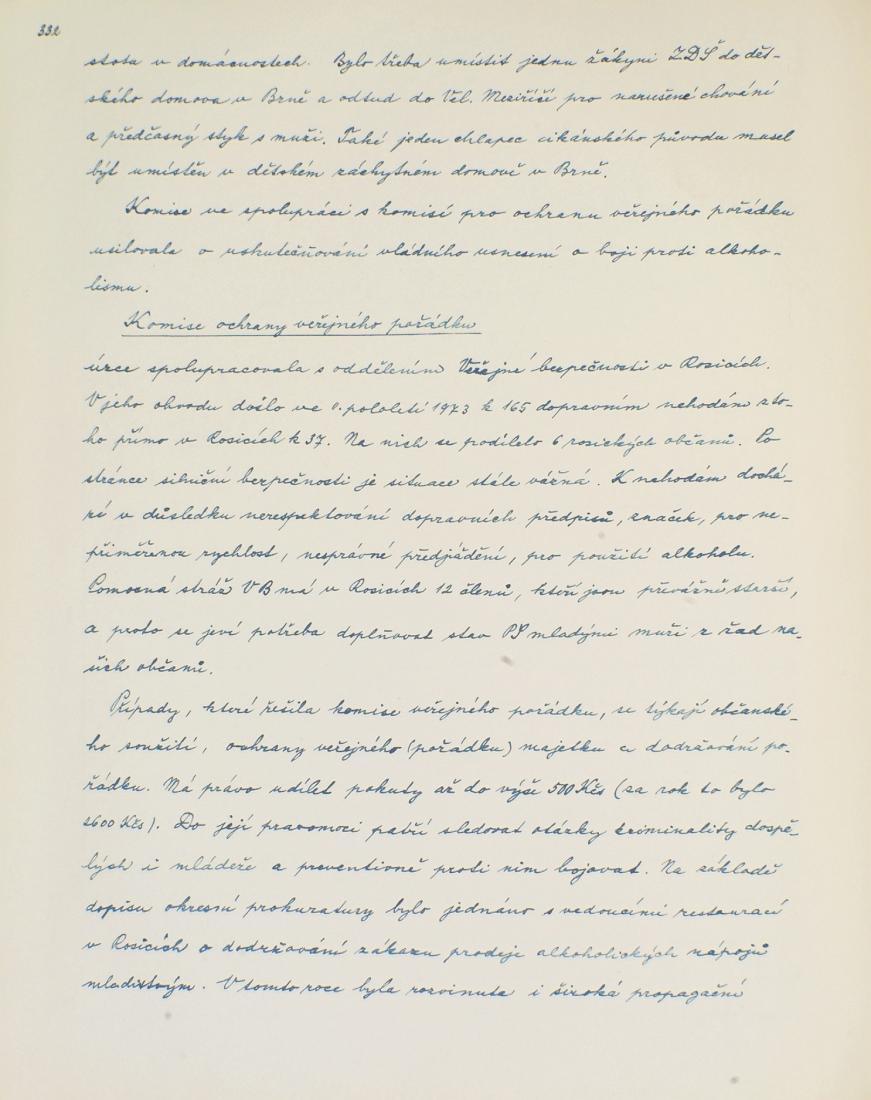 332
stota v domácnostech. Bylo třeba umístit jednu žákyni ZDŠ do dět-
ského domova v Brně a odtud do Vel. Meziříčí pro narušené chování
a předčasný styk s muži. Také jeden chlapec cikánského původu musel
být umístěn v dětském záchytném domově v Brně.
Komise ve spolupráci s komisí pro ochranu veřejného pořádku
usilovala o uskutečňování vládního usnesení o boji proti alkoho-
lismu.
Komise ochrany veřejného pořádku
úzce spolupracovala s oddělením Veřejné bezpečnosti v Rosicích.
V jeho obvodu došlo ve pololetí 1973 k 165 dopravním nehodám z to-
ho přímo v Rosicích k 37. Na nich se podílelo 6 rosických občanů. Po
stránce silniční bezpečnosti je situace stále vážná. K nehodám dochá-
zí v důsledku nerespektování dopravních předpisů, značek, pro ne-
přiměřenou rychlost, nesprávné předjíždění, pro použití alkoholu.
Pomocná stráž VB má v Rosicích 12 členů, kteří jsou převážně starší,
a proto se jeví potřeba doplňovat stav PS mladými muži z řad na-
šich občanů.
Případy, které řešila komise veřejného pořádku, se týkají občanské-
ho soužití, ochrany veřejného (pořádku) majetku a dodržování po-
řádku. Má právo udílet pokuty až do výše 500 Kčs (za rok to bylo
2600 Kčs). Do její pravomoci patří sledovat otázky kriminality dospě-
lých i mládeže a preventivně proti nim bojovat. Na základě
dopisu okresní prokuratury bylo jednáno s vedoucími restaurací
v Rosicích o dodržování zákazu prodeje alkoholických nápojů
mladistvým. V tomto roce byla rozvinuta i široká propagační